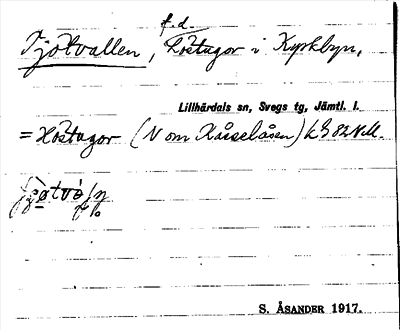 f. d.
Tjötvallen, Hostagor i Kyrkbyn,
Lillhärdals sn, Svegs tg, Jämtl. l.
= Hostagor (N om Kåsselåsen) k 3 82 N.M.
S. ÅSANDER 1917.